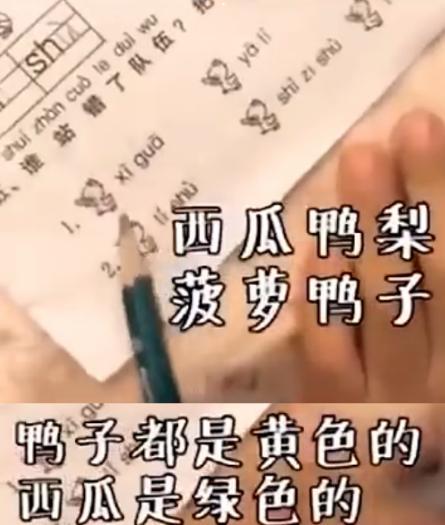 shù
shuí zhàn cuò le duì wu
谁站错了队伍?
1. xī guā
yā lí
2. lí shù
shī zi shù
西瓜鸭梨
菠萝鸭子
鸭子都是黄色的
西瓜是绿色的